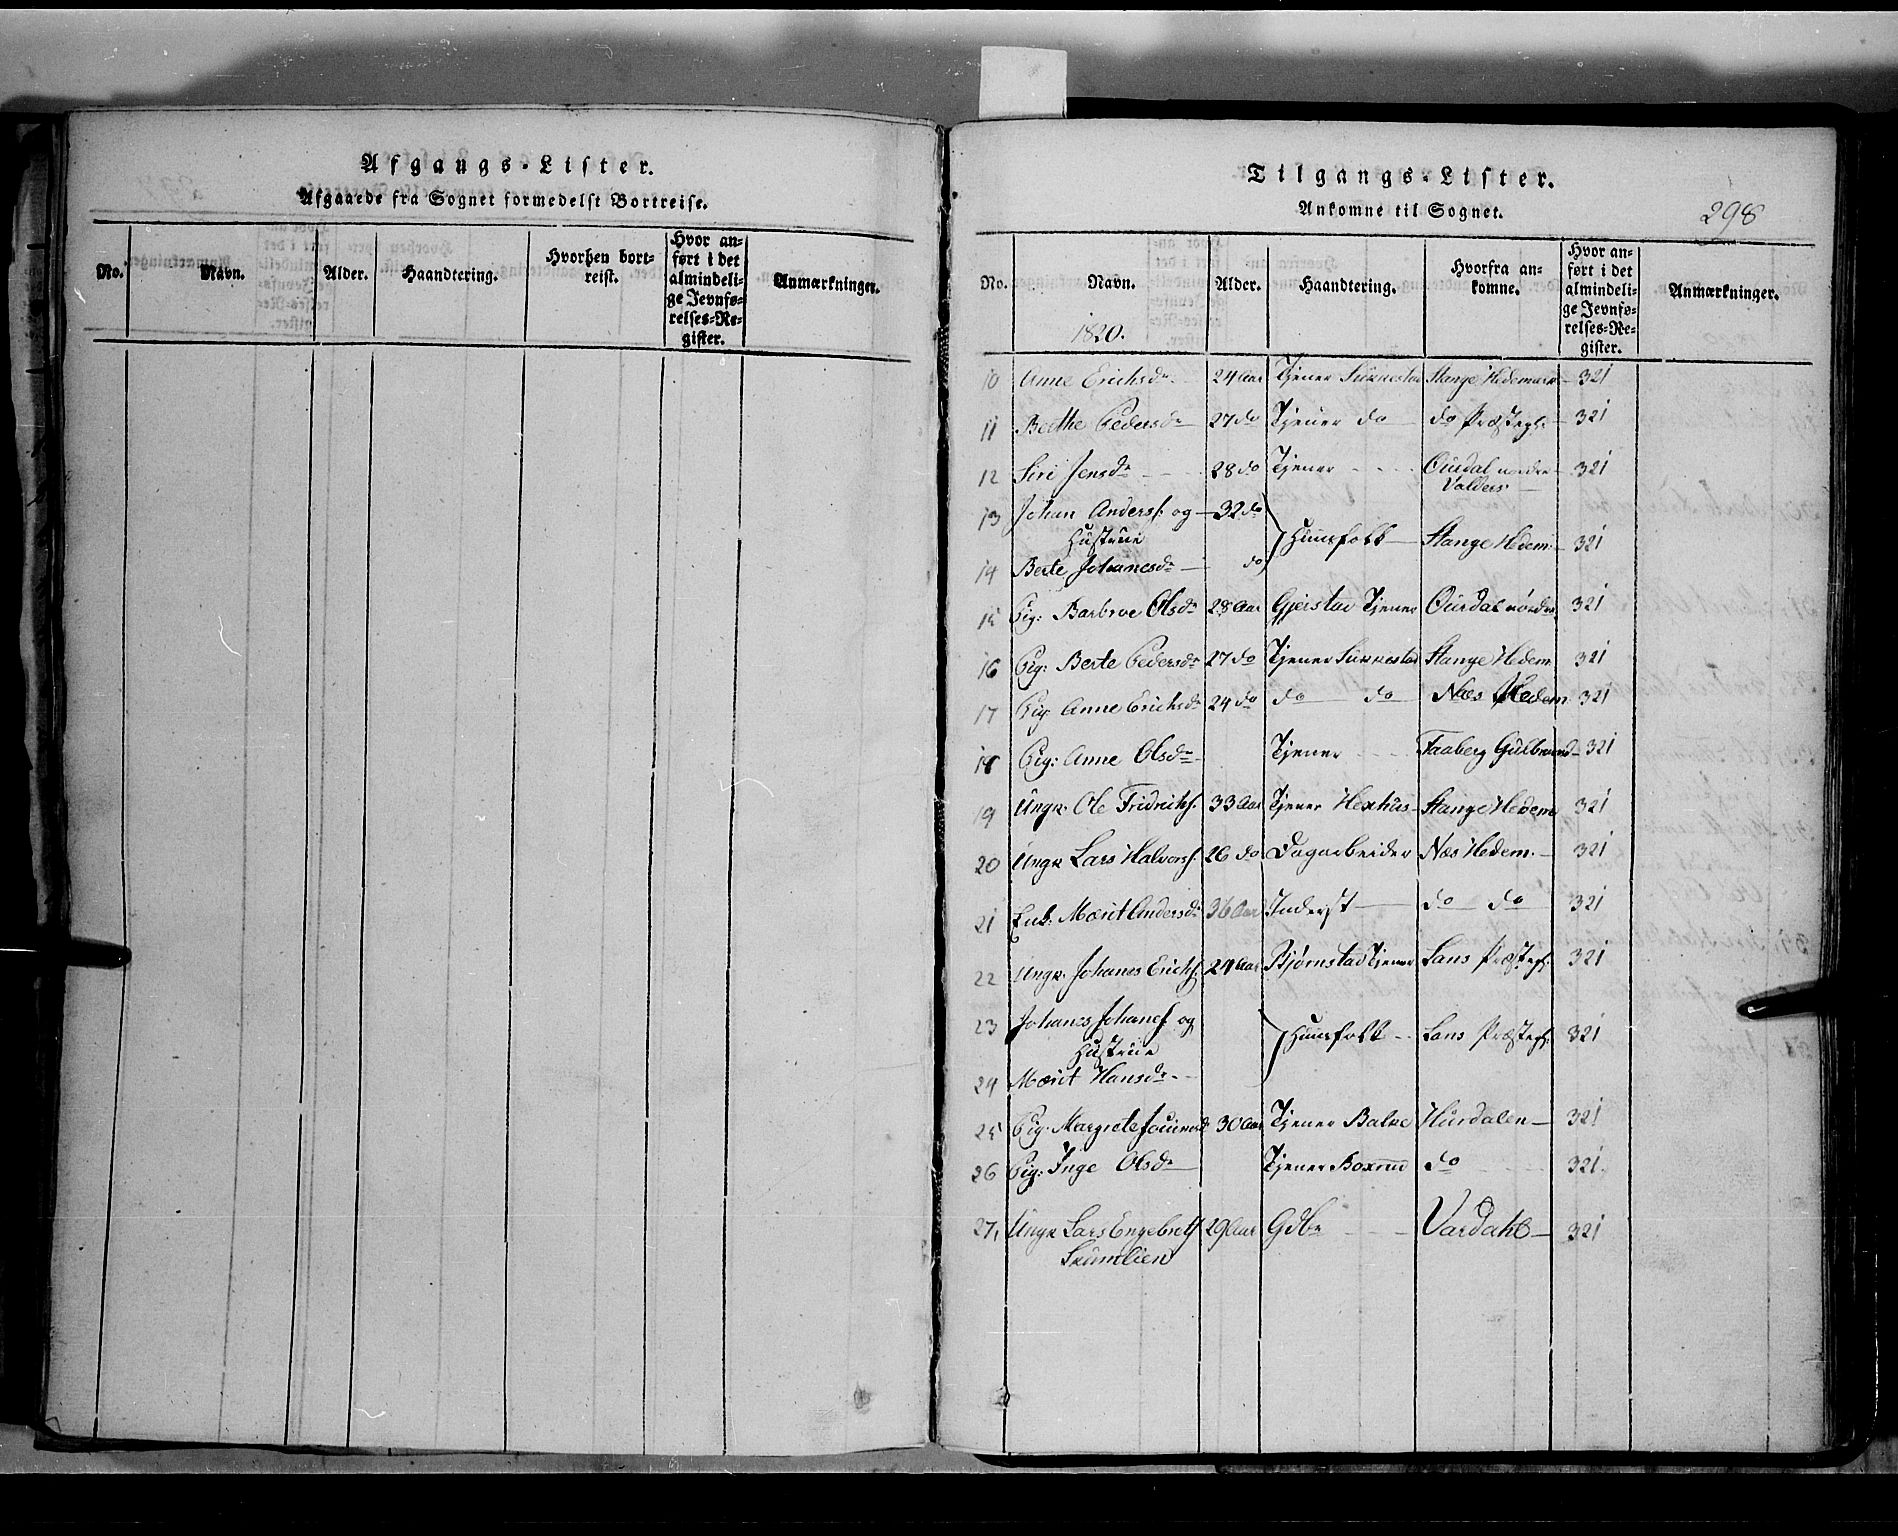 Afgangs-Lister.
Afgaaede fra Sognet formedelst Bortreise.
No. Navn. Alder. Haandtering. Hvorhen bortreist. Hvor anført i det almindelige Jevnførelses-Register. Anmærkninger.
Tilgangs-Lister.
Ankomne til Sognet.
298
No. Navn. Alder. Haandtering. Hvorfra ankomne. Hvor anført i det almindelige Jevnførelses-Register. Anmærkninger.
1820.
10 Anne Erichsdr 24 Aar Tjener Stange Hedemark 321
11 Berthe Pedersdr 27 do Tjener do do Præstegl. 321
12 Siri Jensdr 28 do Tjener Ourdal nordre 321
Valders
13 Johan Anders. og 32 do
Hustrue Huusfolk Stange Hedem. 321
14 Berte Johanesdr do
15 Pig: Barbroe Olsdr 28 Aar Gjeistad Tjener Ourdal nordre 321
16 Pig: Berte Pedersdr 27 do Tjener Stange Hedem 321
17 Pig Anne Erichsdr 24 do do do Næs Hedem 321
18 Pig: Anne Olsdr Tjener Faaberg Gulbrand 321
19 Ungk. Ole Fridrichs. 33 Aar Tjener Stange Hedem 321
20 Ungk Lars Halvors. 26 do Dagarbeider Næs Hedem. 321
21 Enk. Marit Andersdr 36 Aar Inderst do do 321
22 Ungk. Johanes Erichs. 24 Aar Bjørnstad Tjener Lans Præstegl. 321
23 Johanes Johanes. og
Hustrue Huusfolk Lans Præstegl. 321
24 Marit Hansdr
25 Pig. Margrete 30 Aar Tjener Balke Hurdalen 321
26 Pig: Inge Olsdr Tjener do 321.
27, Ungk Lars Engebrets. 29 Aar Gdbr Vardahl 321